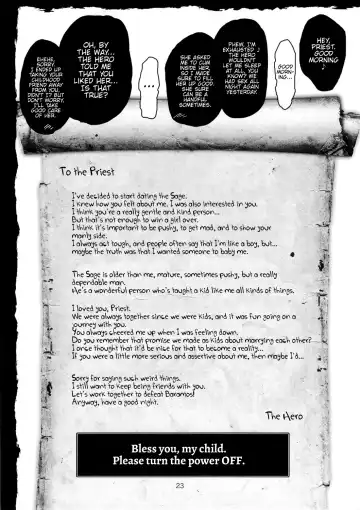 HEY,
PRIEST.
GOOD
MORNING
♪
GOOD
MORN-
ING...
PHEW, I'M
EXHAUSTED ♪
THE HERO
WOULDN'T
LET ME SLEEP
AT ALL, YOU
KNOW? WE
HAD SEX ALL
NIGHT AGAIN
YESTERDAY.
SHE ASKED
ME TO CUM
INSIDE HER,
SO I MADE
SURE TO FILL
HER UP GOOD.
SHE SURE
CAN BE A
HANDFUL
SOMETIMES.
...
OH, BY
THE WAY...
THE HERO
TOLD ME
THAT YOU
LIKED HER...
IS THAT
TRUE?
EHEHE,
SORRY.
I ENDED UP
TAKING YOUR
CHILDHOOD
FRIEND AWAY
FROM YOU,
DIDN'T I? BUT
DON'T WORRY,
I'LL TAKE
GOOD CARE
OF HER.
To the Priest
I've decided to start dating the Sage.
I knew how you felt about me. I was also interested in you.
I think you're a really gentle and kind person...
But that's not enough to win a girl over.
I think it's important to be pushy, to get mad, and to show your
manly side.
I always act tough, and people often say that I'm like a boy, but...
maybe the truth was that I wanted someone to baby me.
The Sage is older than me, mature, sometimes pushy, but a really
dependable man.
He's a wonderful person who's taught a kid like me all kinds of things.
I loved you, Priest.
We were always together since we were kids, and it was fun going on a
journey with you.
You always cheered me up when I was feeling down.
Do you remember that promise we made as kids about marrying each other?
I once thought that it'd be nice for that to become a reality...
If you were a little more serious and assertive about me, then maybe I'd...
Sorry for saying such weird things.
I still want to keep being friends with you.
Let's work together to defeat Baramos!
Anyway, have a good night.
The Hero
Bless you, my child.
Please turn the power OFF.
23